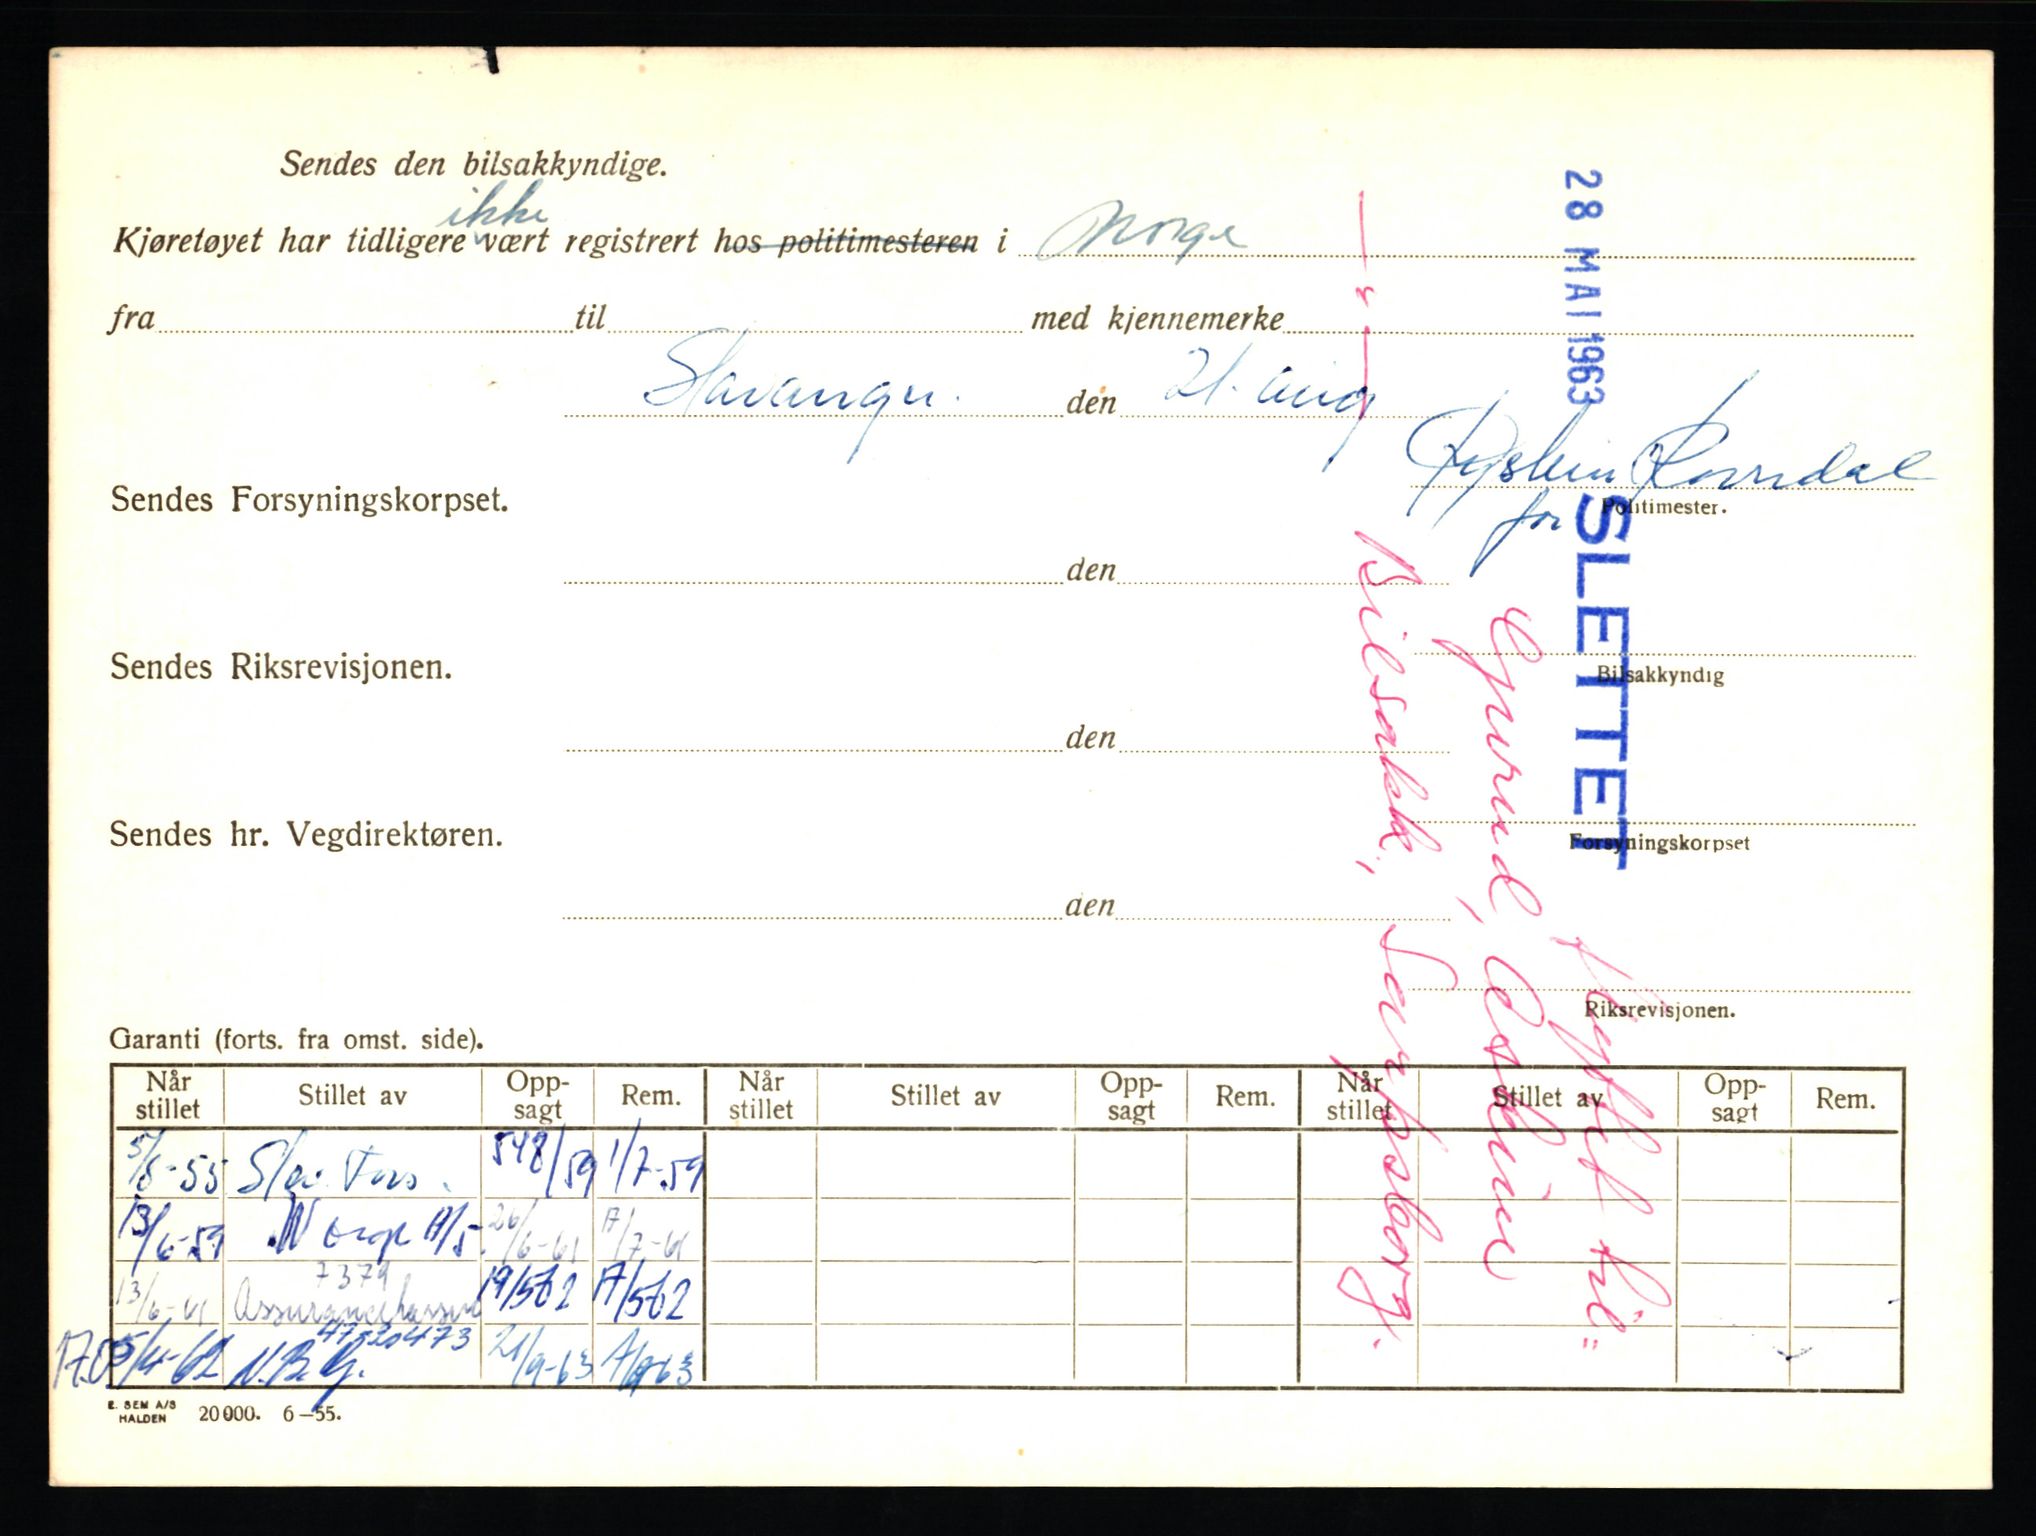 Sendes den bilsakkyndige.
ikke
Kjøretøyet har tidligere vært registrert hos politimesteren i Norge
fra til med kjennemerke
Stavanger. den 21. aug
for Politimester.
Sendes Forsyningskorpset.
den
Bilsakkyndig
Sendes Riksrevisjonen.
den
Forsyningskorpset
Sendes hr. Vegdirektøren.
den
Riksrevisjonen.
28 MAI 1963
SLETTET
til:
Bilsakk., Sarpsborg.
Garanti (forts. fra omst. side).
Når stillet Stillet av Opp-sagt Rem. Når stillet Stillet av Opp-sagt Rem. Når stillet Stillet av Opp-sagt Rem.
548/59 1/7-59
13/6-59 Norge A/S. 26/6-61 17/7-61
7379
13/6-61 19/562 17/562
E. SEM A/S
HALDEN 20000. 6—55.